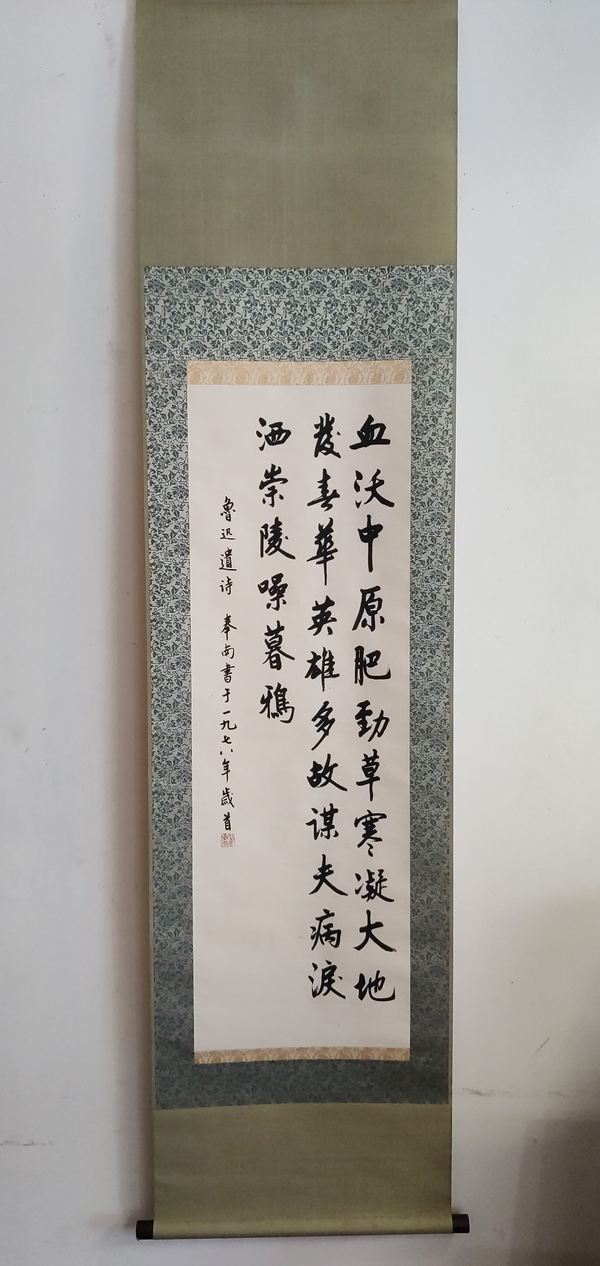 血沃中原肥勁草寒凝大地
發春華英雄多故謀夫病淚
洒崇陵噪暮鴉
魯迅遺诗 奉南書于一九七八年歲首